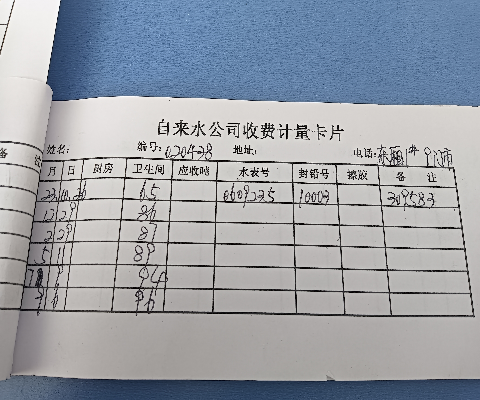 自来水公司收费计量卡片
姓名: 编号: 020428 地址: 电话:
备 注 月 日 厨房 卫生间 应收吨 水表号 封铅号 接胶 备 注
23 10 26 65 0609225 10003 309583
12 29 86
2 29 87
5 11 89
94
9 6 96